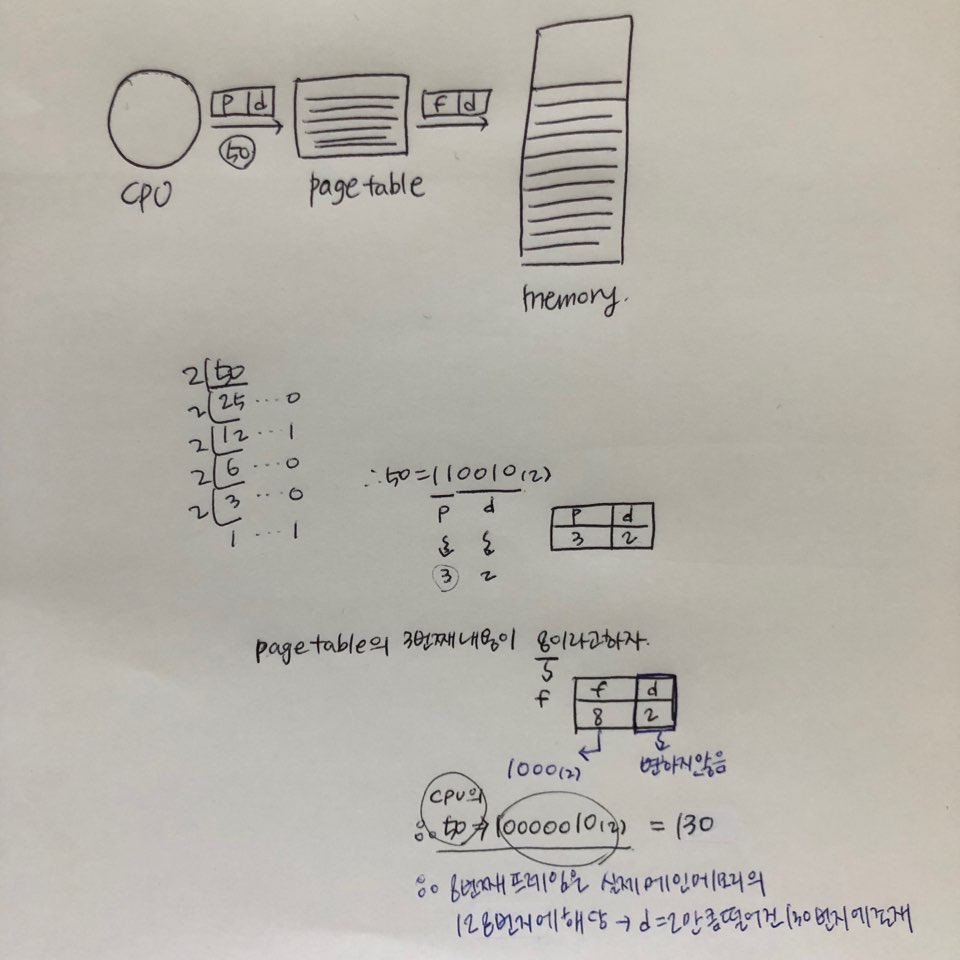 p d
f d
50
CPU
page table
memory.
2 50
2 25 ... 0
2 12 ... 1
2 6 ... 0
2 3 ... 0
1 ... 1
∴50=110010(2)
p d
3 2
p d
3 2
page table의 3번째내용이 8이라고하자.
f
f d
8 2
1000(2) 변하지않음
CPU의
∴ 50 → 10000010(2) = 130
∴ 8번째프레임은 실제메인메모리의
128번지에해당 → d=2만큼떨어진130번지에존재